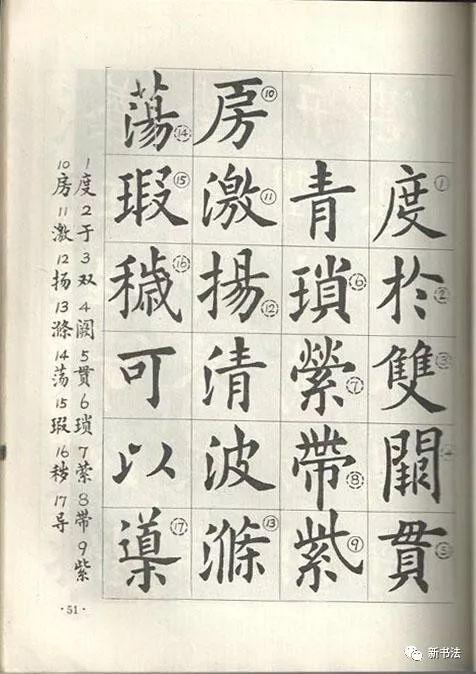 度①於②雙③闕④貫⑤
青瑣⑥縈⑦帶⑧紫⑨
房⑩激⑪揚⑫清波滌⑬
蕩⑭瑕⑮穢⑯可以導⑰
1度2于3双4阙5贯6琐7萦8带9紫
10房11激12扬13涤14荡15瑕16秽17导
·51·
新书法